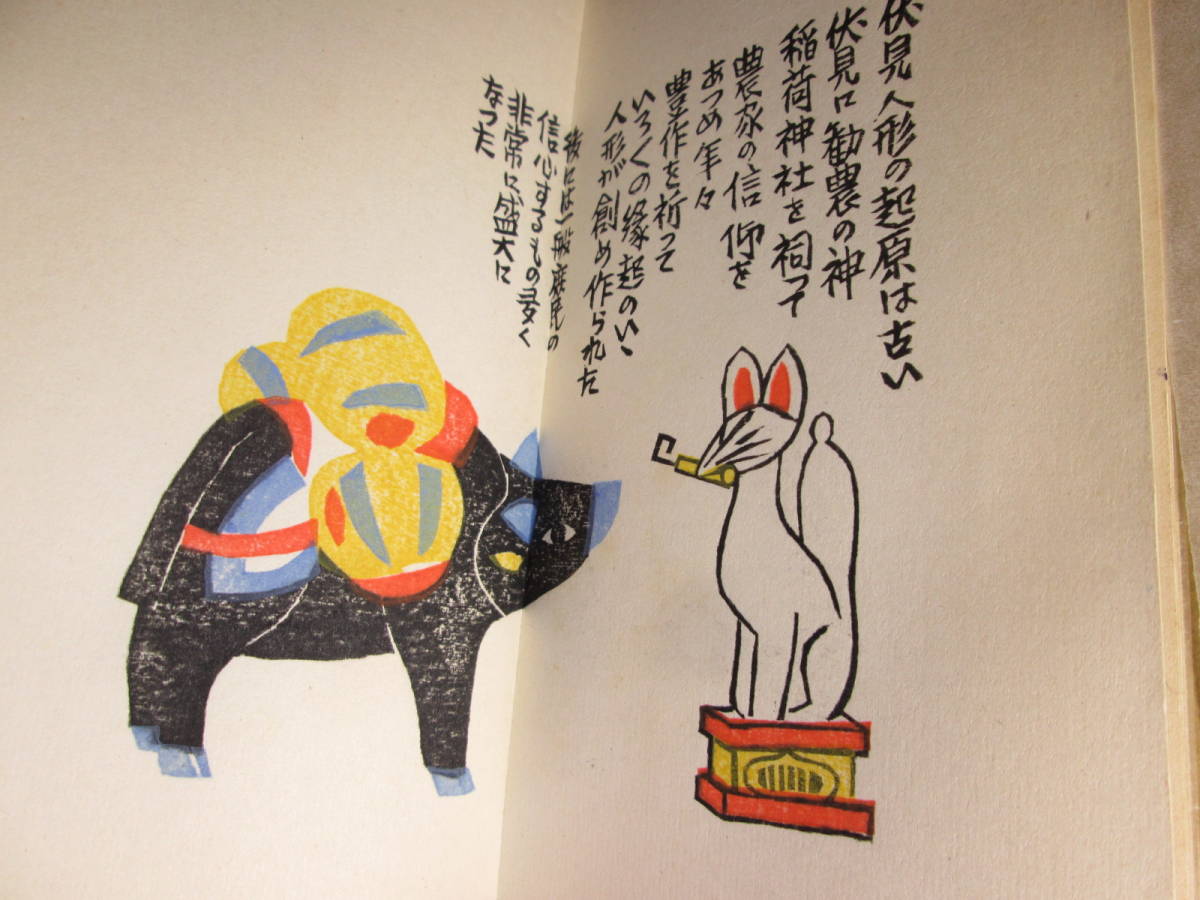 伏見人形の起原は古い
伏見に勧農の神
稲荷神社を祠って
農家の信仰を
あつめ年々
豊作を祈って
いろ〱の縁起のいゝ
人形が創め作られた
後には一般庶民の
信心するもの多く
非常に盛大に
なった